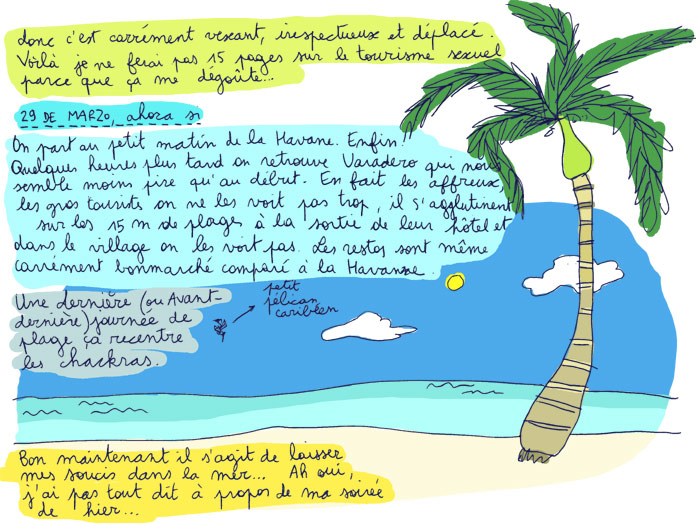 donc c'est carrément vexant, irespectueux et déplacé.
Voilà je ne ferai pas 15 pages sur le tourisme sexuel
parce que ça me dégoûte...
29 DE MARZO, ahora si
On part au petit matin de la Havane. Enfin!
Quelques heures plus tard on retrouve Varadero qui nous
semble moins pire qu'au début. En fait les affreux,
les gros touristes on ne les voit pas trop, il s'agglutinent
sur les 15 m de plage à la sortie de leur hôtel et
dans le village on les voit pas. Les restos sont même
carrément bonmarché comparé à la Havane.
Une dernière (ou Avant-
dernière) journée de
plage ça recentre
les chackras.
petit
pélican
caribéen
Bon maintenant il s'agit de laisser
mes soucis dans la mer... Ah oui,
j'ai pas tout dit à propos de ma soirée
de hier...